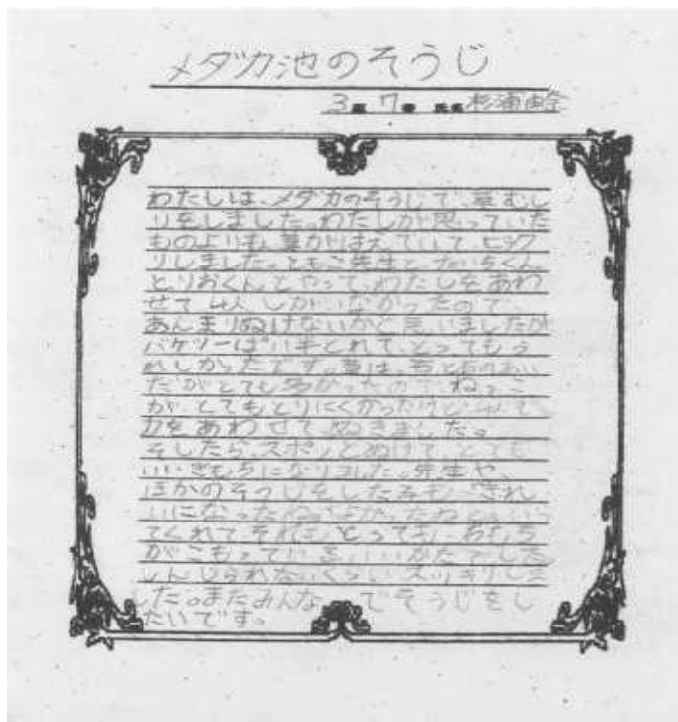 メダカ池のそうじ
3 7 杉浦由
わたしは、メダカのそうじで、草むし
りをしました。わたしが思っていた
ものよりも、草がはえていて、ビック
りしました。ともこ先生と、だいちくん
とりおくんとやって、わたしをあわ
せて4人しかいなかったので、
あんまりぬけないかと思いましたが
バケツ一ぱい半とれて、とってもう
れしかったです。草は、石と石のあい
だがとても多かったので、ねっこ
がとてもとりにくかったけど4人で
力をあわせてぬきました。
そしたら、スポッとぬけて、とても
いいきもちになりました。先生や、
ほかのそうじをした
いになったね。よかったね
てくれて、それも、とっても
がこもっている、いいかたでした。
しんじられないくらいスッキリしま
した。またみんなでそうじをし
たいです。